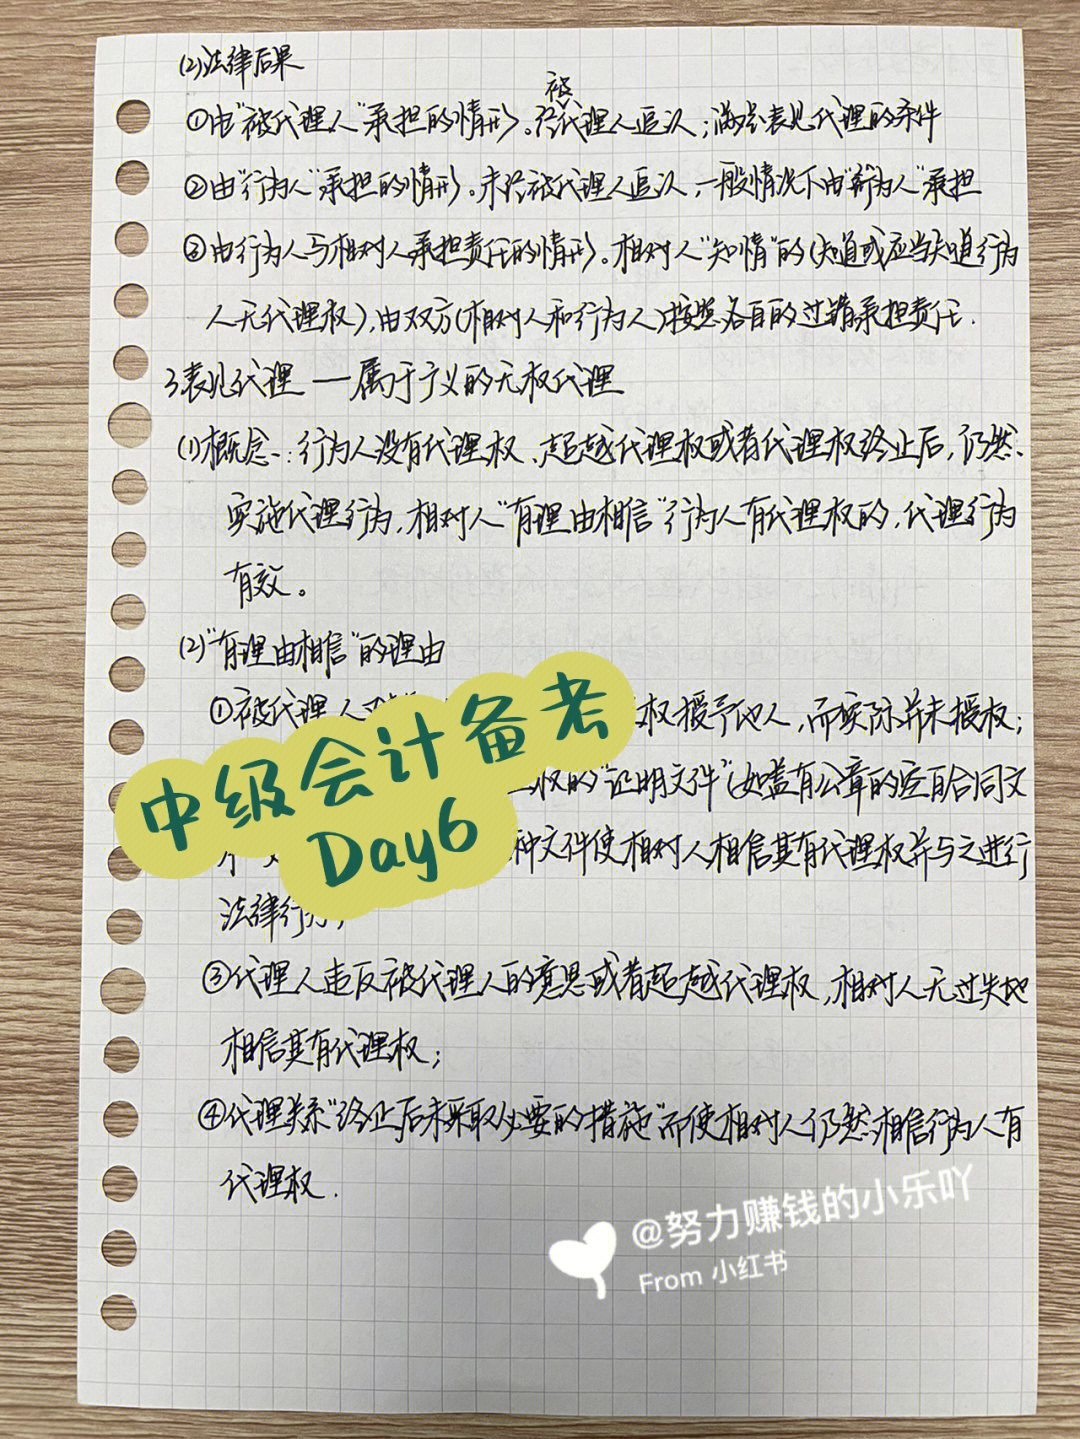 (2)法律后果
①由"被代理人"承担的情形。经被代理人追认；满足表见代理的条件
②由"行为人"承担的情形。未经被代理人追认，一般情况下由"行为人"承担
③由行为人与相对人承担责任的情形。相对人"知情"的(知道或应当知道行为
人无代理权)，由双方(相对人和行为人)按照各自的过错承担责任.
3表见代理——属于广义的无权代理
(1)概念：行为人没有代理权、超越代理权或者代理权终止后，仍然
实施代理行为，相对人"有理由相信"行为人有代理权的，代理行为
有效。
(2)"有理由相信"的理由
①被代理人 权授予他人，而实际并未授权；
权的"证明文件"(如盖有公章的空白合同文
种文件使相对人相信其有代理权并与之进行
法律行为；
③代理人违反被代理人的意思或者超越代理权，相对人无过失地
相信其有代理权；
④代理关系"终止后未采取必要的措施"而使相对人仍然相信行为人有
代理权.
中级会计备考
Day6
@努力赚钱的小乐吖
From 小红书